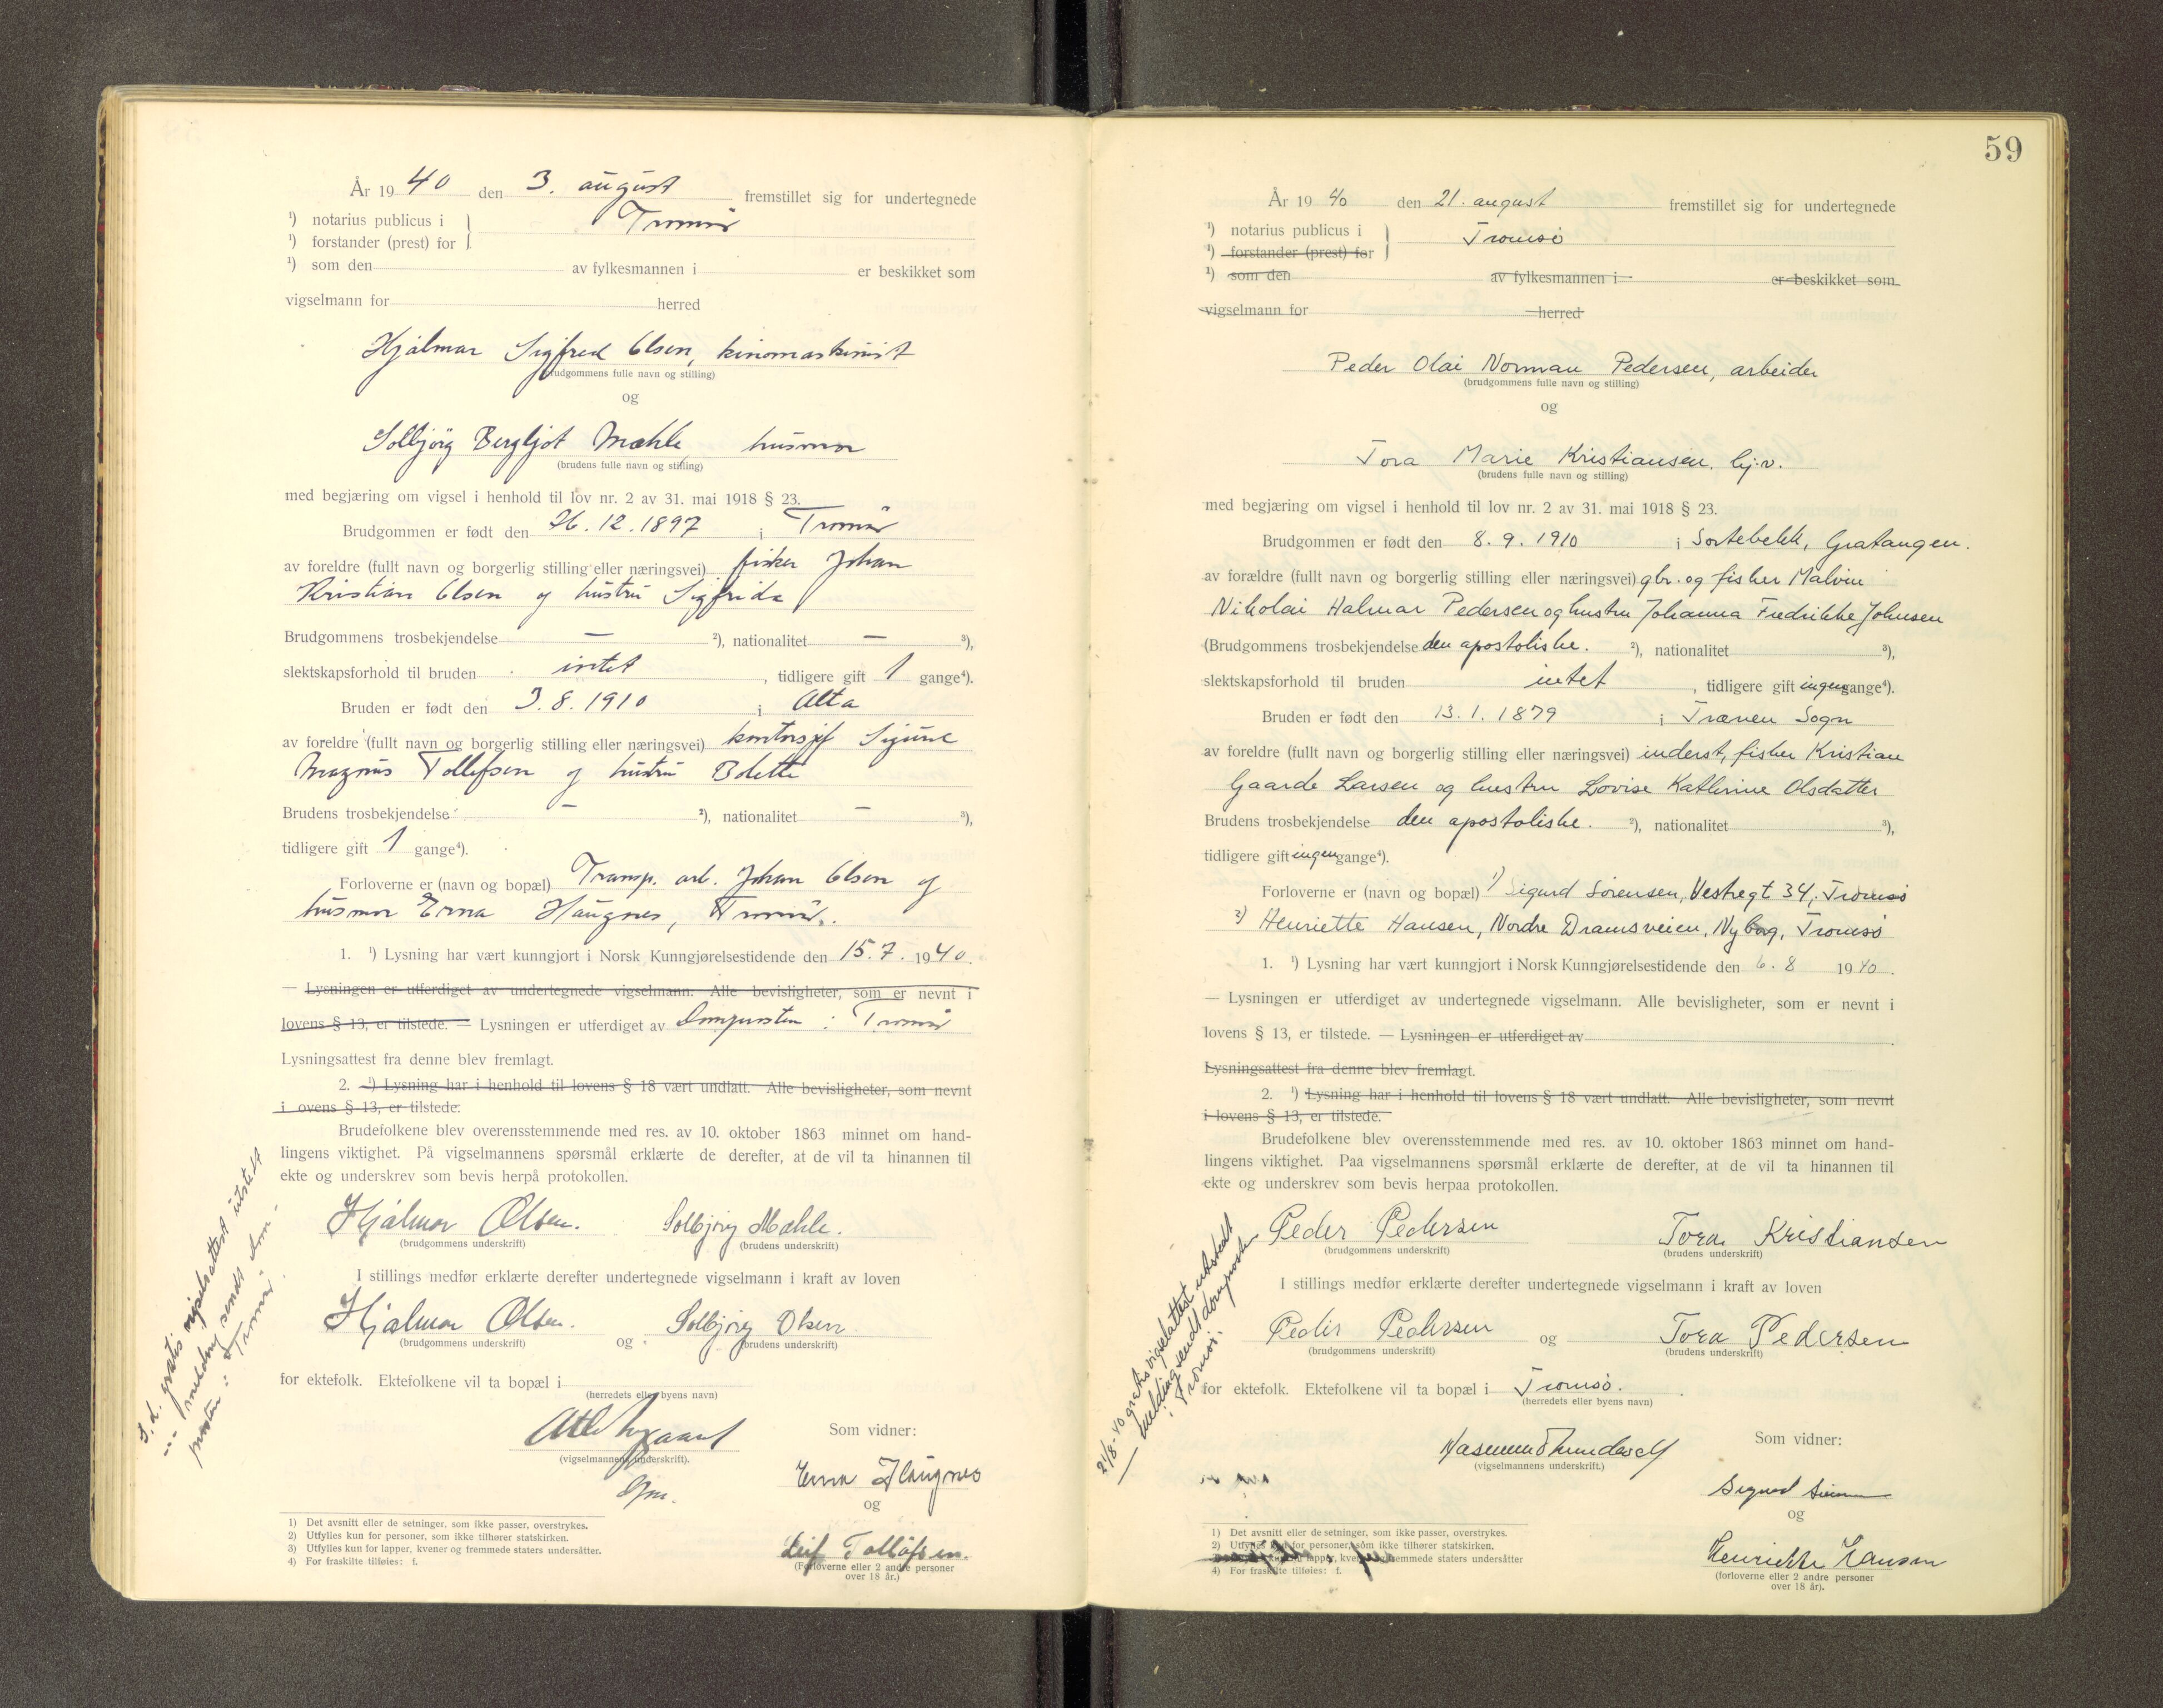 År 1940 den 3. august fremstillet sig for undertegnede
¹) notarius publicus i } Tromsø
¹) forstander (prest) for
¹) som den av fylkesmannen i er beskikket som
vigselmann for herred
Hjalmar Sigfred Olsen, kinomaskinist
(brudgommens fulle navn og stilling)
og
Solbjørg Bergljot Mæhle, husmor
(brudens fulle navn og stilling)
med begjæring om vigsel i henhold til lov nr. 2 av 31. mai 1918 § 23.
Brudgommen er født den 26.12.1897 i Tromsø
av foreldre (fullt navn og borgerlig stilling eller næringsvei) fisker Johan
Kristian Olsen og hustru Sigfrida
Brudgommens trosbekjendelse — ²), nationalitet — ³),
slektskapsforhold til bruden intet, tidligere gift 1 gange⁴).
Bruden er født den 3.8.1910 i Alta
av foreldre (fullt navn og borgerlig stilling eller næringsvei) kontorsjef Sigurd
Magnus Tollefsen og hustru Bolette
Brudens trosbekjendelse — ²), nationalitet — ³),
tidligere gift 1 gange⁴).
Forloverne er (navn og bopæl) Transp. arb. Johan Olsen og
husmor Erna Haugnes, Tromsø.
1. ¹) Lysning har vært kunngjort i Norsk Kunngjørelsestidende den 15.7.1940.
— Lysningen er utferdiget av undertegnede vigselmann. Alle bevisligheter, som er nevnt i
lovens § 13, er tilstede. — Lysningen er utferdiget av Domprosten i Tromsø
Lysningsattest fra denne blev fremlagt.
2. ¹) Lysning har i henhold til lovens § 18 vært undlatt. Alle bevisligheter, som nevnt
i ovens § 13, er tilstede.
Brudefolkene blev overensstemmende med res. av 10. oktober 1863 minnet om hand-
lingens viktighet. På vigselmannens spørsmål erklærte de derefter, at de vil ta hinannen til
ekte og underskrev som bevis herpå protokollen.
Hjalmar Olsen. Solbjørg Mæhle.
(brudgommens underskrift) (brudens underskrift)
I stillings medfør erklærte derefter undertegnede vigselmann i kraft av loven
Hjalmar Olsen. og Solbjørg Olsen
(brudgommens underskrift) (brudens underskrift)
for ektefolk. Ektefolkene vil ta bopæl i
(herredets eller byens navn)
Som vidner:
(vigselmannens underskrift).
Erna Haugnes
og
Leif Tollefsen.
(Forloverne eller 2 andre personer
over 18 år.)
S. d. gratis vigselsattest utstedt
— " — melding sendt dom-
prosten i Tromsø.
1) Det avsnitt eller de setninger, som ikke passer, overstrykes.
2) Utfylles kun for personer, som ikke tilhører statskirken.
3) Utfylles kun for lapper, kvener og fremmede staters undersåtter.
4) For fraskilte tilføies: f.
59
År 1940 den 21. august fremstillet sig for undertegnede
¹) notarius publicus i } Tromsø
¹) forstander (prest) for
¹) som den av fylkesmannen i er beskikket som
vigselmann for herred
Peder Olai Norman Pedersen, arbeider
(brudgommens fulle navn og stilling)
og
Tora Marie Kristiansen, hj.v.
(brudens fulle navn og stilling)
med begjæring om vigsel i henhold til lov nr. 2 av 31. mai 1918 § 23.
Brudgommen er født den 8.9.1910 i Sortebekk, Gratangen.
av forældre (fullt navn og borgerlig stilling eller næringsvei) gbr. og fisker Malvin
Nikolai Halmar Pedersen og hustru Johanna Fredrikke Johnsen
(Brudgommens trosbekjendelse den apostoliske. ²), nationalitet ³),
slektskapsforhold til bruden intet, tidligere gift ingen gange⁴).
Bruden er født den 13.1.1879 i Træven Sogn
av foreldre (fullt navn og borgerlig stilling eller næringsvei) inderst, fisker Kristian
Gaarde Larsen og hustru Lovise Kathrine Olsdatter
Brudens trosbekjendelse den apostoliske. ²), nationalitet ³),
tidligere gift ingen gange⁴).
Forloverne er (navn og bopæl) 1) Sigurd Sørensen, Vestregt 34, Tromsø
2) Henriette Hansen, Nordre Dramsveien, Nyborg, Tromsø
1. ¹) Lysning har vært kunngjort i Norsk Kunngjørelsestidende den 6.8 1940.
— Lysningen er utferdiget av undertegnede vigselmann. Alle bevisligheter, som er nevnt i
lovens § 13, er tilstede. — Lysningen er utferdiget av
Lysningsattest fra denne blev fremlagt.
2. ¹) Lysning har i henhold til lovens § 18 vært undlatt. Alle bevisligheter, som nevnt
i lovens § 13, er tilstede.
Brudefolkene blev overensstemmende med res. av 10. oktober 1863 minnet om hand-
lingens viktighet. Paa vigselmannens spørsmål erklærte de derefter, at de vil ta hinannen til
ekte og underskrev som bevis herpaa protokollen.
Peder Pedersen Tora Kristiansen
(brudgommens underskrift) (brudens underskrift)
I stillings medfør erklærte derefter undertegnede vigselmann i kraft av loven
Peder Pedersen og Tora Pedersen
(brudgommens underskrift) (brudens underskrift)
for ektefolk. Ektefolkene vil ta bopæl i Tromsø.
(herredets eller byens navn)
Som vidner:
(vigselmannens underskrift.)
Sigurd
og
Henriette Hansen
(forloverne eller 2 andre personer
over 18 år).
21/8-40 gratis vigselattest utstedt
— melding sendt domprosten
i Tromsø.
1) Det avsnitt eller de setninger, som ikke passer, overstrykes.
2) Utfylles kun for personer, som ikke tilhører statskirken.
lapper, kvener og fremmede staters undersåtter
4) For fraskilte tilføies: f.